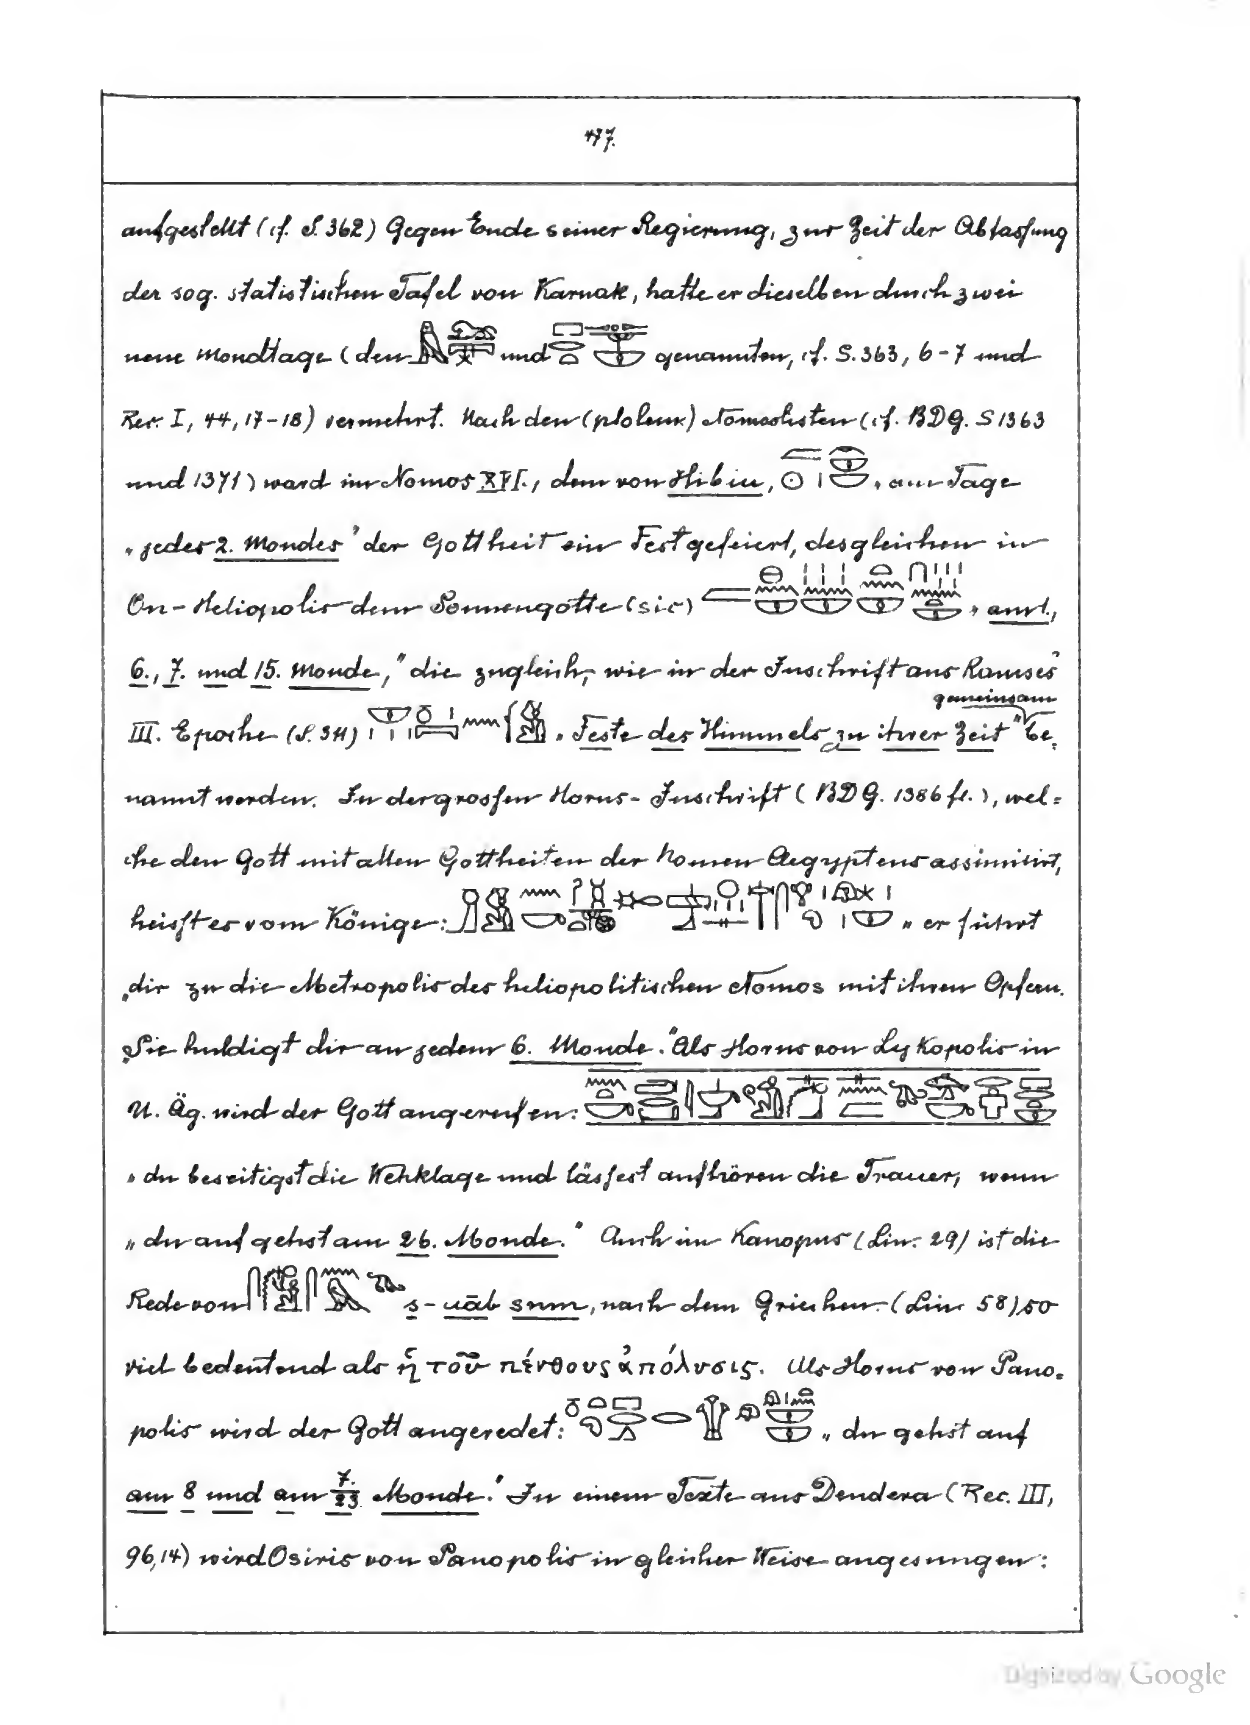 aufgestellt (cf. S. 362) Gegen Ende seiner Regierung, zur Zeit der Abfassung
der sog. statistischen Tafel von Karnak, hatte er dieselben durch zwei
neue Mondtage (den und genannten, cf. S. 363, 6-7 und
Rec. I, 44, 17-18) vermehrt. Nach den (ptolem.) Nomoslisten (cf. BDG. S 1363
und 1371) ward im Nomos XVI., dem von Hibiu, „am Tage
„jedes 2. Mondes" der Gottheit ein Fest gefeiert, desgleichen in
On-Heliopolis dem Sonnengotte (sic) „am 1.,
6., 7. und 15. Monde," die zugleich, wie in der Inschrift aus Ramses
III. Epoche (S. 311) „Feste des Himmels zu ihrer Zeit" gemeinsam be-
nannt werden. In der grossen Horus-Inschrift (BDG. 1386 fl.), wel-
che den Gott mit allen Gottheiten der Nomen Aegyptens assimilirt,
heisst es vom Könige: „er führt
„dir zu die Metropolis des heliopolitischen Nomos mit ihren Opfern.
„Sie huldigt dir an jedem 6. Monde." Als Horus von Lykopolis in
U. Äg. wird der Gott angerufen:
„du beseitigst die Wehklage und lässest aufhören die Trauer, wenn
„du aufgehst am 26. Monde." Auch im Kanopus (Lin. 29) ist die
Rede von s-uāb snm, nach dem Griechen (Lin. 58) so
viel bedeutend als ἡ τοῦ πένθους ἀπόλυσις. Als Horus von Pano-
polis wird der Gott angeredet: „du gehst auf
am 8 und am 7. 23. Monde." In einem Texte aus Dendera (Rec. III,
96, 14) wird Osiris von Panopolis in gleicher Weise angesungen:
Digitized by Google